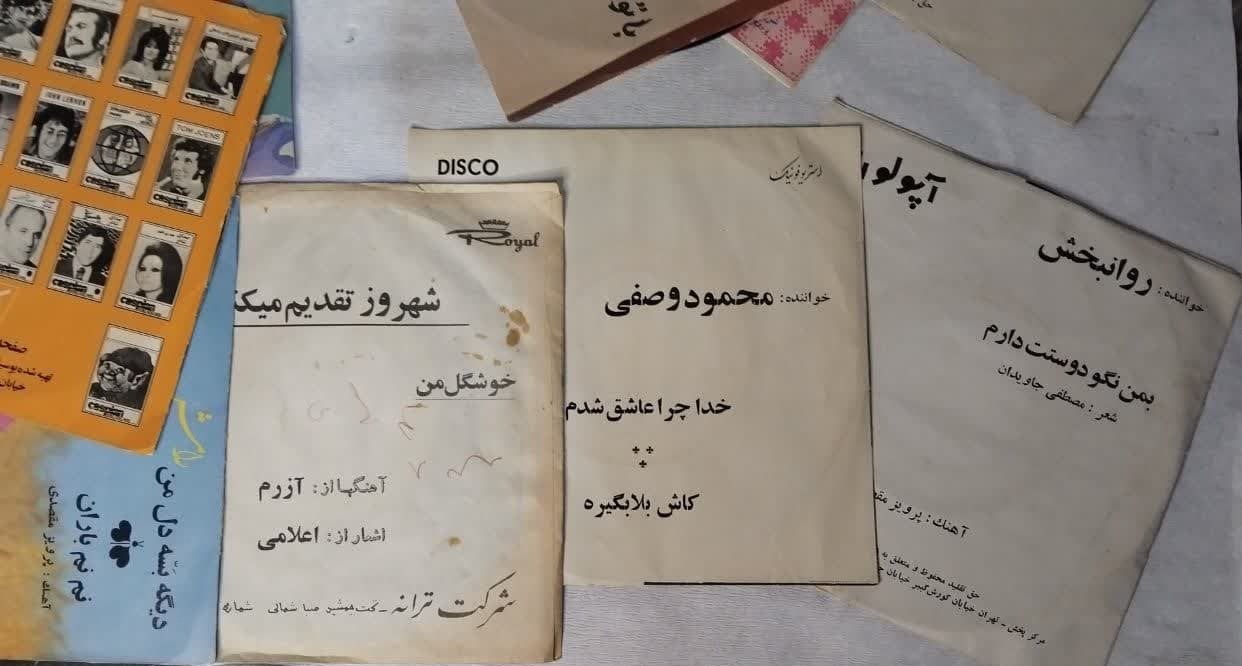 JOHN LENNON
TOM JOENS
caspian
caspian
caspian
caspian
caspian
caspian
صفحه
تهیه شده بوسیله
خیابان
دیگه بسّه دل من
نم نم باران
آهنگ : پرویز مقصدی
Royal
شهروز تقدیم میکند
خوشگل من
آهنگها از: آزرم
اشعار از: اعلامی
شرکت ترانه - تخت جمشید صبا شمالی شماره
DISCO
استریوفونیک
خواننده: محمود وصفی
خدا چرا عاشق شدم
کاش بلا بگیره
آپولو
خواننده: روانبخش
بمن نگو دوستت دارم
شعر : مصطفی جاویدان
آهنگ : پرویز
حق تقلید محفوظ و متعلق به
مرکز پخش - تهران خیابان کورش کبیر خیابان
با تو